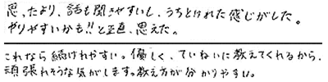 思ったより、話も聞きやすいし、うちとけれた感じがした。
やりやすいかも!!と正直、思えた。
これなら続けれやすい。優しく、ていねいに教えてくれるから、
頑張れそうな気がします。教え方が分かりやすい。